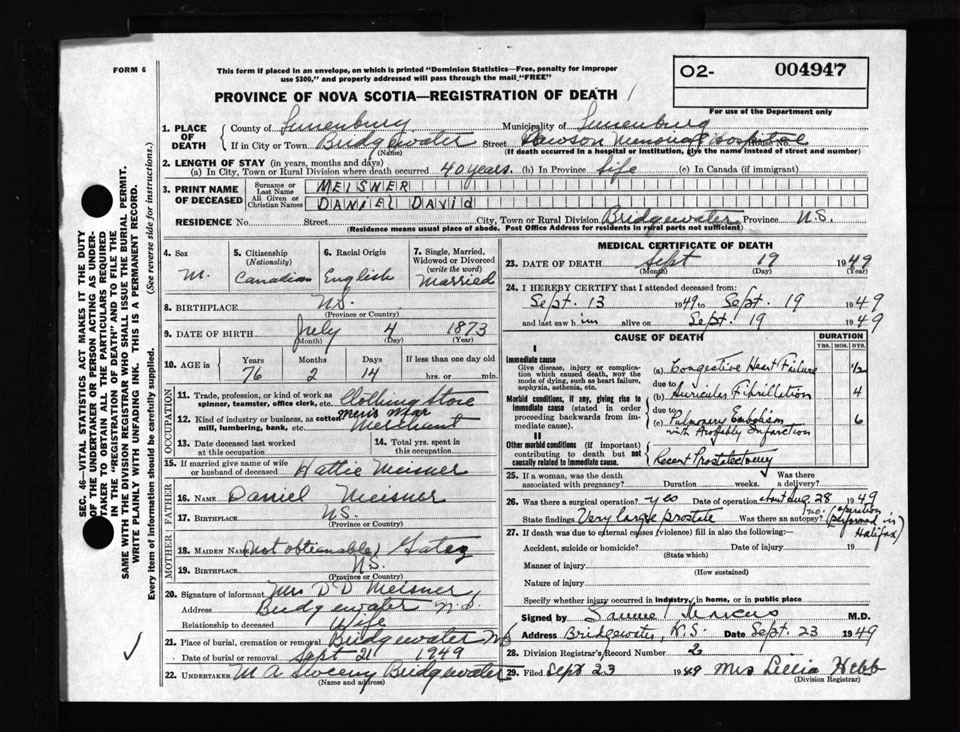 FORM 6
This form if placed in an envelope, on which is printed "Dominion Statistics—Free, penalty for improper
use $300," and properly addressed will pass through the mail "FREE"
02- 004947
For use of the Department only
PROVINCE OF NOVA SCOTIA—REGISTRATION OF DEATH
1. PLACE OF DEATH { County of Lunenburg Municipality of Lunenburg
If in City or Town Bridgewater Street Dawson Memorial Hospital House No.
(Name) (If death occurred in a hospital or institution, give the name instead of street and number)
2. LENGTH OF STAY (in years, months and days)
(a) In City, Town or Rural Division where death occurred 40 years. (b) In Province Life (c) In Canada (if immigrant)
3. PRINT NAME OF DECEASED { Surname or Last Name MEISNER
All Given or Christian Names DANIEL DAVID
RESIDENCE No. Street City, Town or Rural Division Bridgewater Province N.S.
(Residence means usual place of abode. Post Office Address for residents in rural parts not sufficient)
SEC. 46—VITAL STATISTICS ACT MAKES IT THE DUTY
OF THE UNDERTAKER OR PERSON ACTING AS UNDER-
TAKER TO OBTAIN ALL THE PARTICULARS REQUIRED
IN THE "REGISTRATION OF DEATH" AND TO FILE THE
SAME WITH THE DIVISION REGISTRAR WHO SHALL ISSUE THE BURIAL PERMIT.
WRITE PLAINLY WITH UNFADING INK. THIS IS A PERMANENT RECORD.
Every item of information should be carefully supplied. (See reverse side for instructions.)
4. Sex M.
5. Citizenship (Nationality) Canadian
6. Racial Origin English
7. Single, Married, Widowed or Divorced (write the word) Married
8. BIRTHPLACE N.S.
(Province or Country)
9. DATE OF BIRTH July 4 1873
(Month) (Day) (Year)
10. AGE in { Years 76 Months 2 Days 14 If less than one day old hrs. or min.
OCCUPATION
11. Trade, profession, or kind of work as spinner, teamster, office clerk, etc. Clothing Store
12. Kind of industry or business, as cotton mill, lumbering, bank, etc. Men's Wear Merchant
13. Date deceased last worked at this occupation
14. Total yrs. spent in this occupation
15. If married give name of wife or husband of deceased Hattie Meisner
FATHER
16. NAME Daniel Meisner
17. BIRTHPLACE N.S.
(Province or Country)
MOTHER
18. MAIDEN NAME (not obtainable)
19. BIRTHPLACE N.S.
(Province or Country)
20. Signature of informant Mrs D D Meisner
Address Bridgewater N.S.
Relationship to deceased Wife
21. Place of burial, cremation or removal Bridgewater NS
Date of burial or removal Sept 21 1949
22. UNDERTAKER M A Bridgewater
(Name and address)
MEDICAL CERTIFICATE OF DEATH
23. DATE OF DEATH Sept 19 1949
(Month) (Day) (Year)
24. I HEREBY CERTIFY that I attended deceased from:
Sept. 13 1949 to Sept. 19 1949
and last saw him alive on Sept. 19 1949
CAUSE OF DEATH DURATION
YRS. MOS. DYS.
I
Immediate cause
Give disease, injury or complication which caused death, not the mode of dying, such as heart failure, asphyxia, asthenia, etc.
(a) Congestive Heart Failure 1/2
due to
Morbid conditions, if any, giving rise to immediate cause (stated in order proceeding backwards from immediate cause).
(b) Auricular Fibrillation 4
due to
(c) Pulmonary Embolism with Probably Infarction 6
II
Other morbid conditions (if important) contributing to death but not causally related to immediate cause.
Recent Prostatectomy
25. If a woman, was the death associated with pregnancy? Duration weeks. Was there a delivery?
26. Was there a surgical operation? yes Date of operation about Aug. 28 1949
State findings Very large prostate Was there an autopsy? no. (operation performed in Halifax)
27. If death was due to external causes (violence) fill in also the following:—
Accident, suicide or homicide? Date of injury 19
(State which)
Manner of injury
(How sustained)
Nature of injury
Specify whether injury occurred in industry, in home, or in public place
Signed by M.D.
Address Bridgewater, N.S. Date Sept. 23 1949
28. Division Registrar's Record Number 2
29. Filed Sept 23 1949 Mrs Lellia Hebb
(Division Registrar)